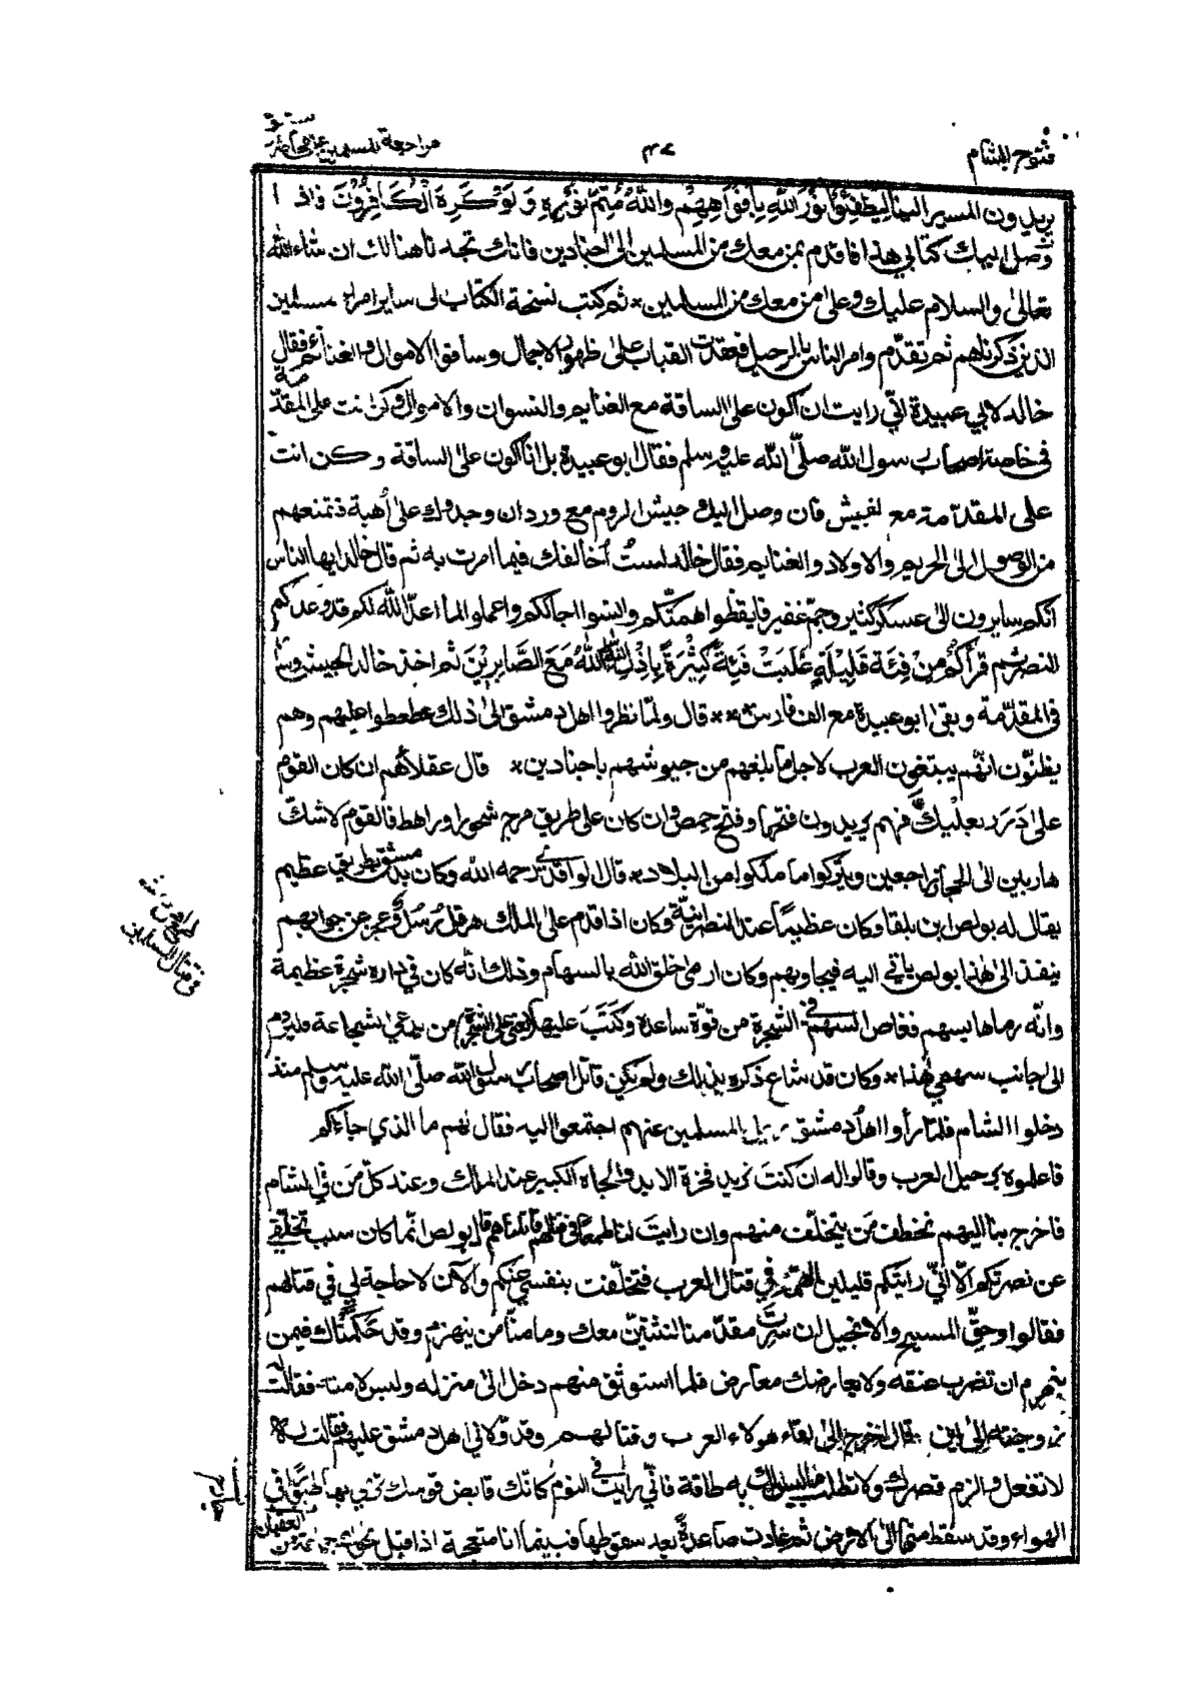 فتوح الشام
يريدون المسير الينا ليطفئوا نور الله بافواههم والله متم نوره ولو كره الكافرون فاذا
وصل اليك كتابي هذا فاقدم بمن معك من المسلمين الى اجنادين فانك تجدنا هنالك ان شاء الله
تعالى والسلام عليك وعلى من معك من المسلمين * ثم كتب نسخة الكتاب الى ساير امراء مسلمين
الذين ذكرناهم ثم تقدم وامر الناس بالرحيل فعقدت القباب على ظهور الاجمال وساقوا الاموال والغنائم فقال
خالد لابي عبيدة اني رايت ان اكون على الساقة مع الغنايم والنسوان والاموال وكن انت على المقدمة
في خاصة اصحاب رسول الله صلى الله عليه وسلم فقال ابو عبيدة بل انا اكون على الساقة وكن انت
على المقدمة مع الجيش فان وصل اليك جيش الروم مع وردان وجدوك على أهبة فتمنعهم
من الوصول الى الحريم والاولاد والغنايم فقال خالد لستُ أخالفك فيما امرت به ثم قال خالد ايها الناس
انكم سايرون الى عسكر كثير وجم غفير فايقظوا هممكم والبسوا اجالكم واعملوا لما اعد الله لكم قد وعدكم
النصر ثم قرأ كم من فئة قليلة غلبت فئة كثيرة باذن الله والله مع الصابرين ثم اخذ خالد الجيش وسار
في المقدمة وبقى ابو عبيدة مع الف فارس ** قال ولما نظروا اهل دمشق الى ذلك عطعطوا عليهم وهم
يظنون انهم يبتغون العرب لاجل ما بلغهم من جيوشهم باجنادين * قال عقلائهم ان كان القوم
على درب بعلبك فهم يريدون فتحها وفتح حمص وان كان على طريق مرج شحورا وراهط فالقوم لا شك
هاربين الى الحجاز راجعين ويتركوا ما ملكوا من البلاد * قال الواقدي رحمه الله وكان بدمشق بطريق عظيم
يقال له بولص ابن بلقا وكان عظيماً عند النصرانية وكان اذا قدم على الملك هرقل رسل وعجز عن جوابهم
ينفذ الى هذا بولص ياتي اليه فيجاوبهم وكان ارمى خلق الله بالسهام وذلك انه كان في داره شجرة عظيمة
وانه رماها بسهم فغاص السهم في الشجرة من قوة ساعده وكتب عليها يعني على الشجرة من يدعي الشجاعة فليرم
الى جانب سهمي هذا * وكان قد شاع ذكره بذلك ولم يكن قاتل اصحاب رسول الله صلى الله عليه وسلم منذ
دخلوا الشام فلما رأوا اهل دمشق المسلمين عنهم اجتمعوا اليه فقال لهم ما الذي جاءكم
فاعلموه برحيل العرب وقالوا له ان كنت تريد فخرة الابد والجاه الكبير عند الملك وعند كل من في الشام
فاخرج بنا اليهم نخطف من يتخلف منهم وان رايت لنا طمعا في قتالهم قاتلناهم قال بولص انما كان سبب تخلفي
عن نصرتكم الا اني رايتكم قليلين الهمة في قتال العرب فتخلفت بنفسي عنكم والآن لا حاجة لي في قتالهم
فقالوا وحق المسيح والانجيل ان سرت مقدمنا لنثبتن معك وما منا من ينهزم وقد حكمناك فيمن
ينهزم ان تضرب عنقه ولا يعارضك معارض فلما استوثق منهم دخل الى منزله ولبس لامته فقالت له
زوجته الى اين قال اخرج الى لقاء هولاء العرب وقتالهم وقد ولاني اهل دمشق عليهم فقالت له
لا تفعل والزم قصرك ولا تطلب ما ليس لك به طاقة فاني رايت في النوم كانك قابض قوسك ترمي بها طيرا في
الهواء وقد سقط منها الى الارض ثم عادت صاعدةً بعد سقوطها فبينما انا متعجبة اذ اقبل
العقبان
في قتال المسلمين